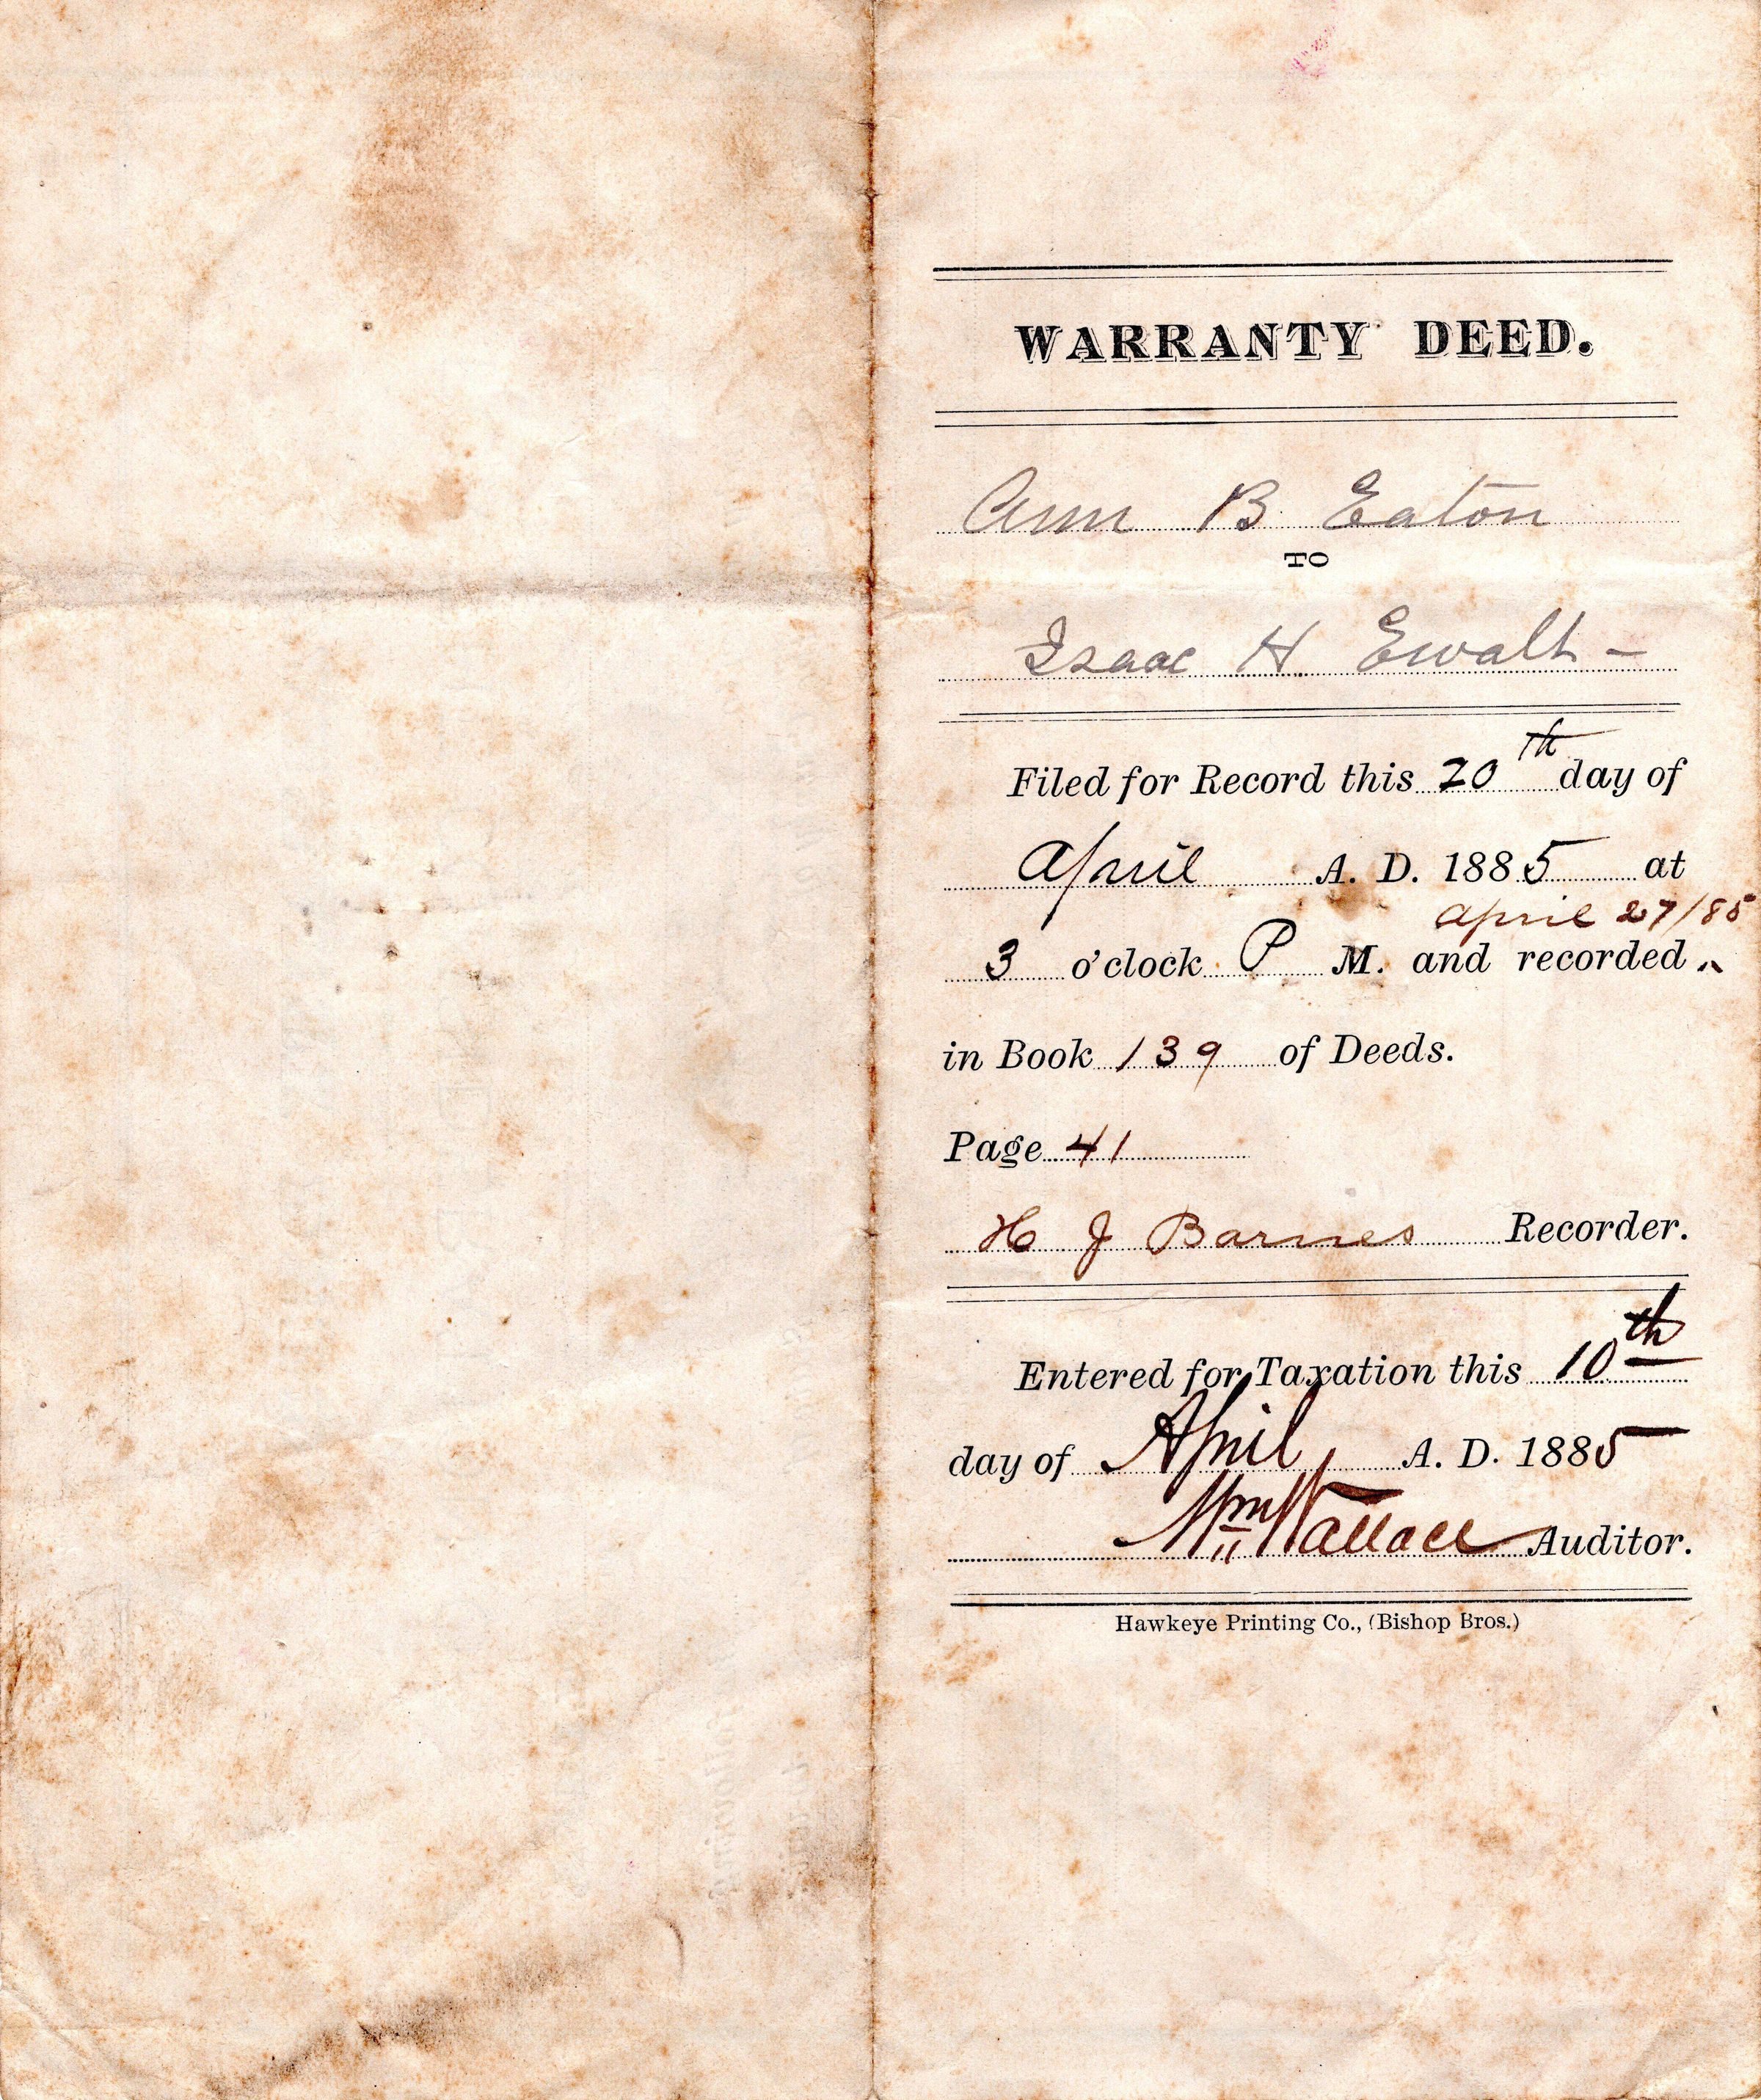 WARRANTY DEED.
Ann B Eaton
TO
Isaac H Ewalt -
Filed for Record this 20th day of
April A. D. 1885 at
April 27/85
3 o'clock P M. and recorded ^
in Book 139 of Deeds.
Page 41
H J Barnes Recorder.
Entered for Taxation this 10th
day of April A. D. 1885
Wm Wallace Auditor.
Hawkeye Printing Co., (Bishop Bros.)